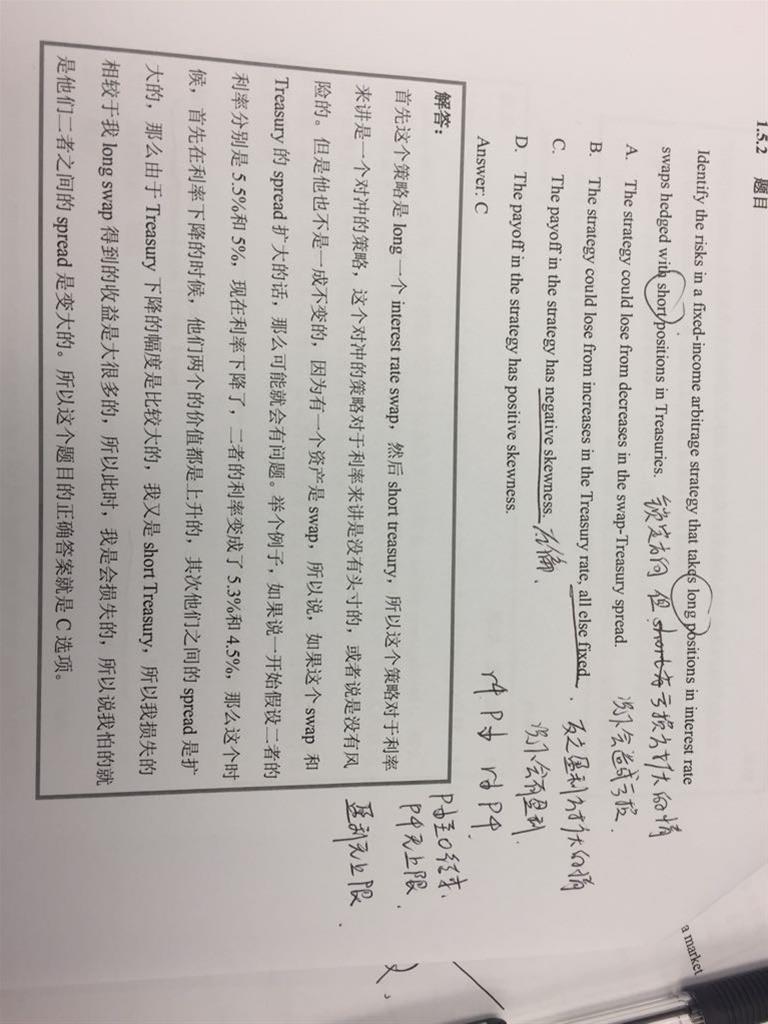 1.5.2 题目
Identify the risks in a fixed-income arbitrage strategy that takes long positions in interest rate
swaps hedged with short positions in Treasuries. 锁定方向 但 亏损 的情
A. The strategy could lose from decreases in the swap-Treasury spread. 不会造成亏损.
B. The strategy could lose from increases in the Treasury rate, all else fixed. 反之盈利 的情
C. The payoff in the strategy has negative skewness. 左偏. 不会有盈利.
D. The payoff in the strategy has positive skewness.
r↑ P↓ r↓ P↑.
Answer: C
P↓至0结束.
P↑无上限.
盈利无上限.
解答:
首先这个策略是 long 一个 interest rate swap，然后 short treasury，所以这个策略对于利率
来讲是一个对冲的策略，这个对冲的策略对于利率来讲是没有头寸的，或者说是没有风
险的。但是他也不是一成不变的，因为有一个资产是 swap，所以说，如果这个 swap 和
Treasury 的 spread 扩大的话，那么可能就会有问题。举个例子，如果说一开始假设二者的
利率分别是 5.5%和 5%，现在利率下降了，二者的利率变成了 5.3%和 4.5%，那么这个时
候，首先在利率下降的时候，他们两个的价值都是上升的，其次他们之间的 spread 是扩
大的，那么由于 Treasury 下降的幅度是比较大的，我又是 short Treasury，所以我损失的
相较于我 long swap 得到的收益是大很多的，所以此时，我是会损失的，所以说我怕的就
是他们二者之间的 spread 是变大的。所以这个题目的正确答案就是 C 选项。
a market